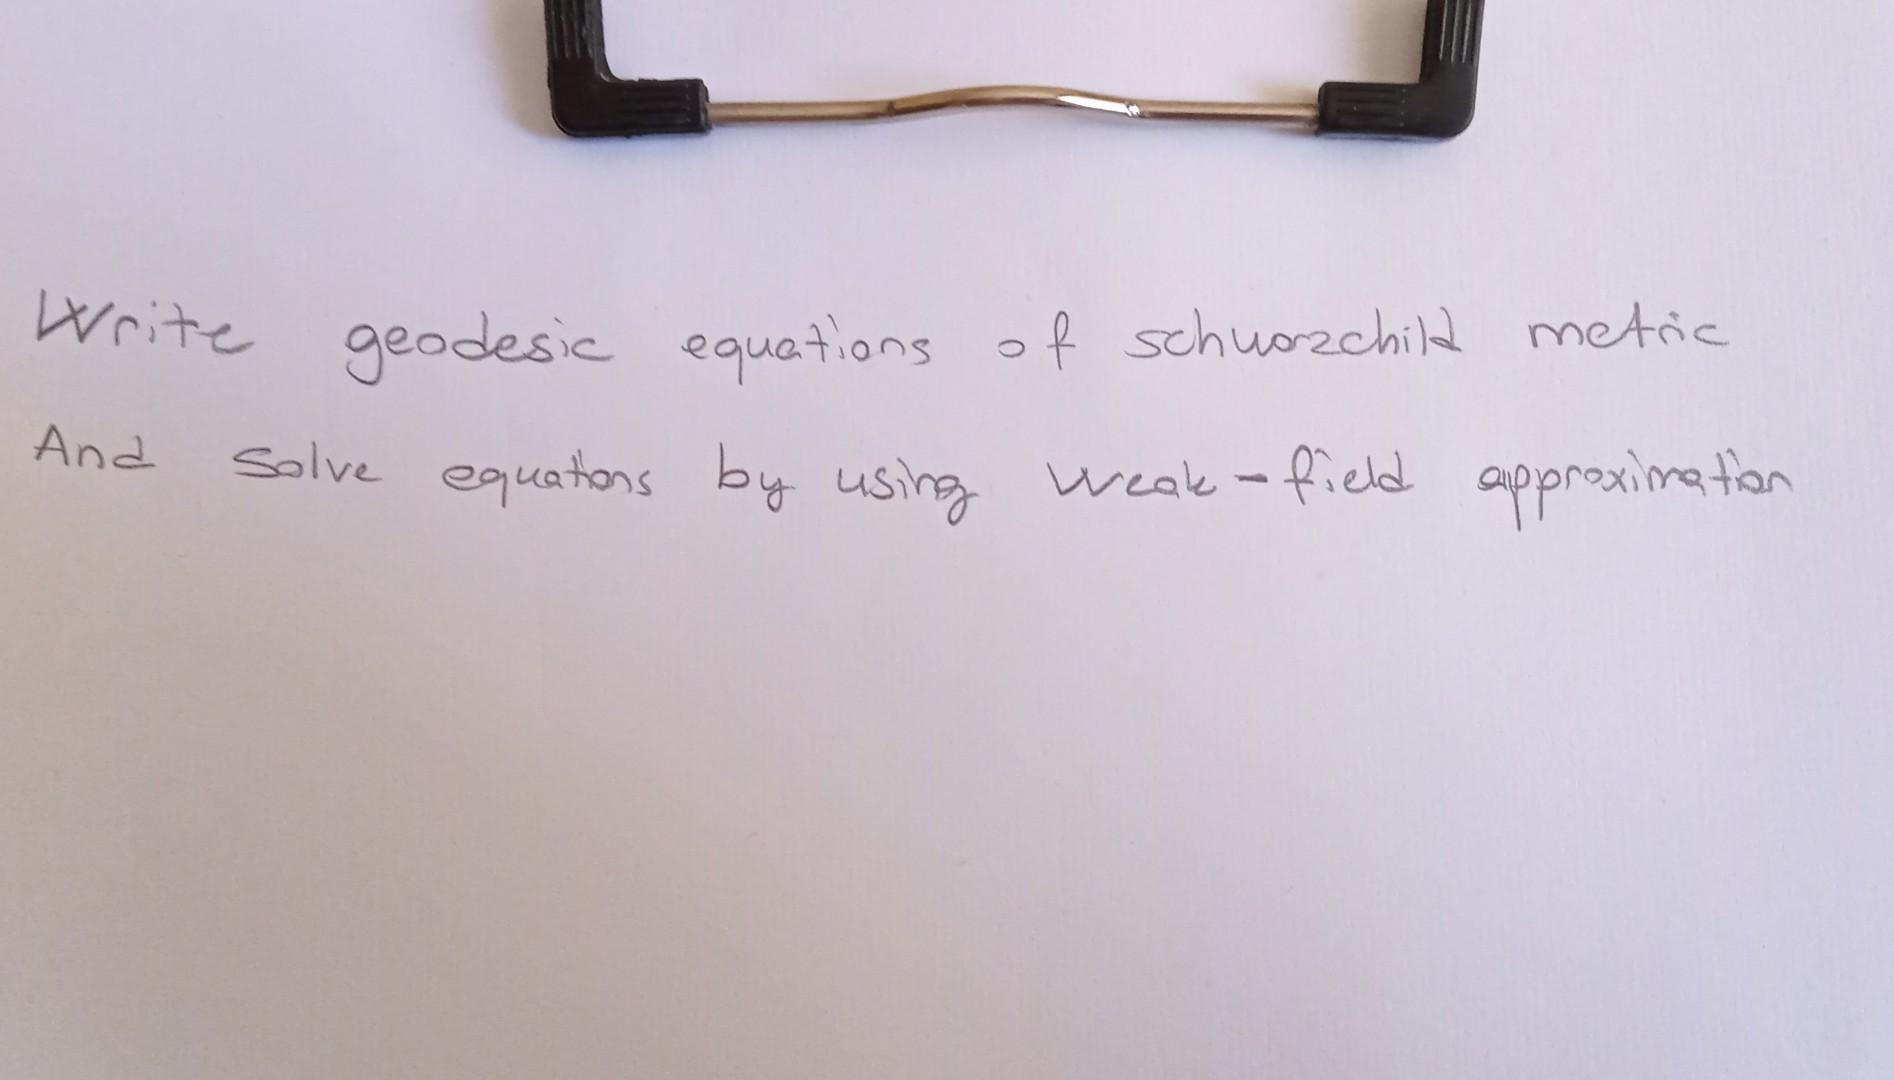 Write geodesic equations of schwarzchild metric
And Solve equations by using weak-field approximation